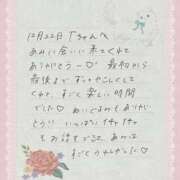 12月22日Tちゃんへ
あみに会いに来てくれて
ありがとうー♡ 最初から
最後まで ずっとやさしくして
くれて、すごく楽しい時間
でした♡ ぬいぐるみもありがと
う♡ いっぱい
もお話もできて、あみは
すごくうれしかった♡